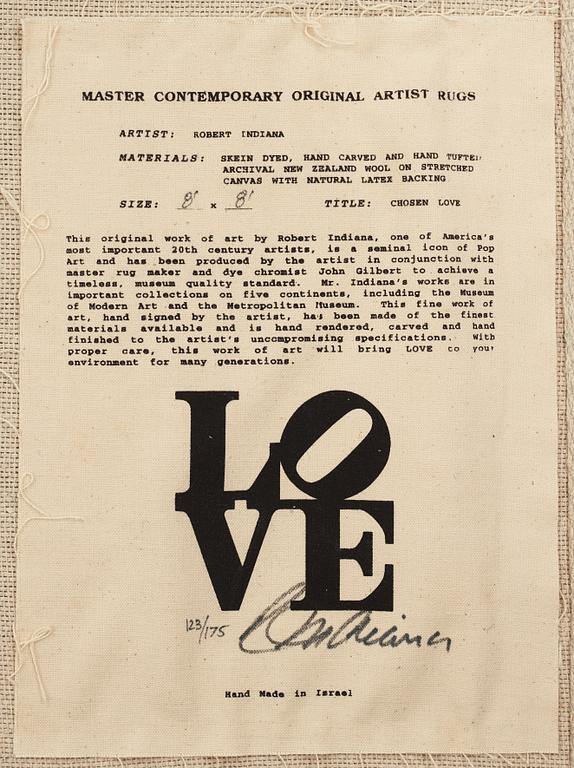 MASTER CONTEMPORARY ORIGINAL ARTIST RUGS
ARTIST: ROBERT INDIANA
MATERIALS: SKEIN DYED, HAND CARVED AND HAND TUFTED
ARCHIVAL NEW ZEALAND WOOL ON STRETCHED
CANVAS WITH NATURAL LATEX BACKING
SIZE: 8' x 8' TITLE: CHOSEN LOVE
This original work of art by Robert Indiana, one of America's
most important 20th century artists, is a seminal icon of Pop
Art and has been produced by the artist in conjunction with
master rug maker and dye chromist John Gilbert to achieve a
timeless, museum quality standard. Mr. Indiana's works are in
important collections on five continents, including the Museum
of Modern Art and the Metropolitan Museum. This fine work of
art, hand signed by the artist, has been made of the finest
materials available and is hand rendered, carved and hand
finished to the artist's uncompromising specifications. With
proper care, this work of art will bring LOVE to your
environment for many generations.
LO
VE
123/175 R Indiana
Hand Made in Israel